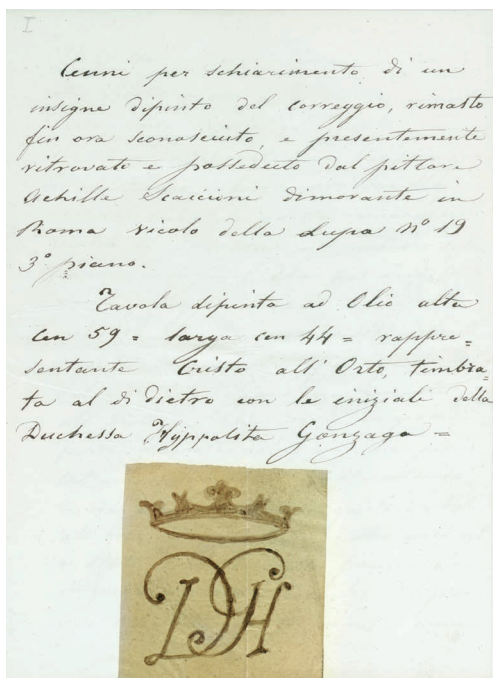 I
Cenni per schiarimento di un
insigne dipinto del Correggio, rimasto
fin ora sconosciuto, e presentemente
ritrovato e posseduto dal pittore
Achille Scaccioni dimorante in
Roma vicolo della Lupa n° 19
3° piano.
Tavola dipinta ad Olio alta
cen 59 = larga cen 44 = rappre=
sentante Cristo all'Orto, timbra=
ta al di dietro con le iniziali della
Duchessa Hyppolita Gonzaga =
DH